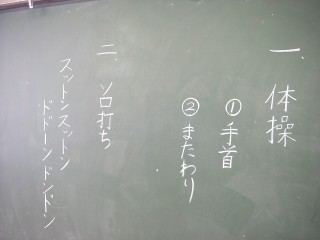 一、体操
①手首
②またわり
二、ソロ打ち
スットンスットン
ドドーンドンドン